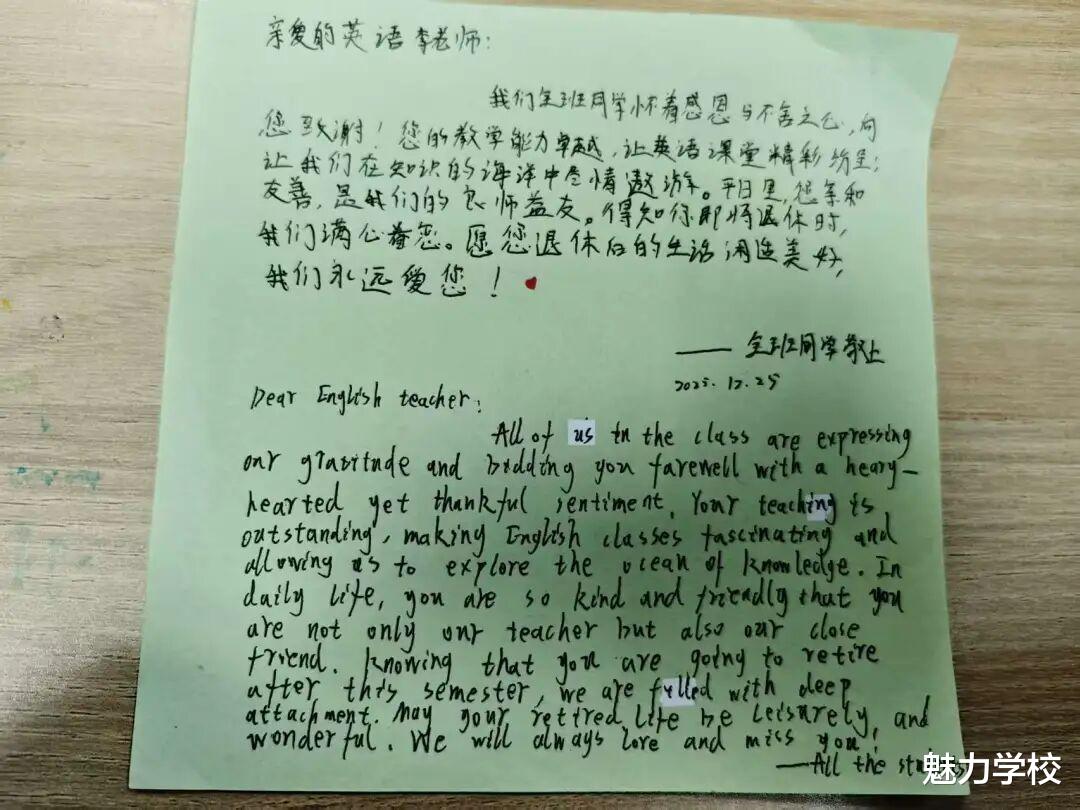 亲爱的英语李老师:
我们全班同学怀着感恩与不舍之心,向
您致谢!您的教学能力卓越,让英语课堂精彩纷呈;
让我们在知识的海洋中尽情遨游。平日里,您亲和
友善,是我们的良师益友。得知你即将退休时,
我们满心眷恋。愿您退休后的生活闲适美好,
我们永远爱您!
—— 全班同学敬上
2025.12.25
Dear English teacher:
All of us in the class are expressing
our gratitude and bidding you farewell with a heavy-
hearted yet thankful sentiment. Your teaching is
outstanding, making English classes fascinating and
allowing us to explore the ocean of knowledge. In
daily life, you are so kind and friendly that you
are not only our teacher but also our close
friend. Knowing that you are going to retire
after this semester, we are filled with deep
attachment. May your retired life be leisurely, and
wonderful. We will always love and miss you!
—All the
魅力学校